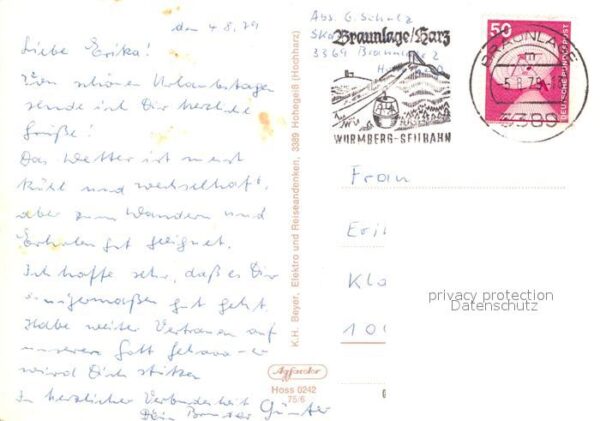 den 4.8.79
Liebe Erika!
Von schönen Urlaubstagen
sende ich Dir herzliche
Grüße!
Das Wetter ist meist
kühl und wechselhaft,
aber zum Wandern und
Erholen gut geeignet.
Ich hoffe sehr, daß es Dir
einigermaßen gut geht.
Habe weiter Vertrauen auf
unseren Gott
wird Dich stützen
In herzlicher Verbundenheit
Dein Bruder Günter
K.H. Beyer, Elektro und Reiseandenken, 3389 Hohegeiß (Hochharz)
Agfacolor
Hoss 0242
75/6
Abs. G. Schulz
3369
Braunlage/Harz
WURMBERG-SEILBAHN
50
DEUTSCHE BUNDESPOST
BRAUNLAGE
5.8.79
3389
Frau
Eri
Klo
100
privacy protection
Datenschutz